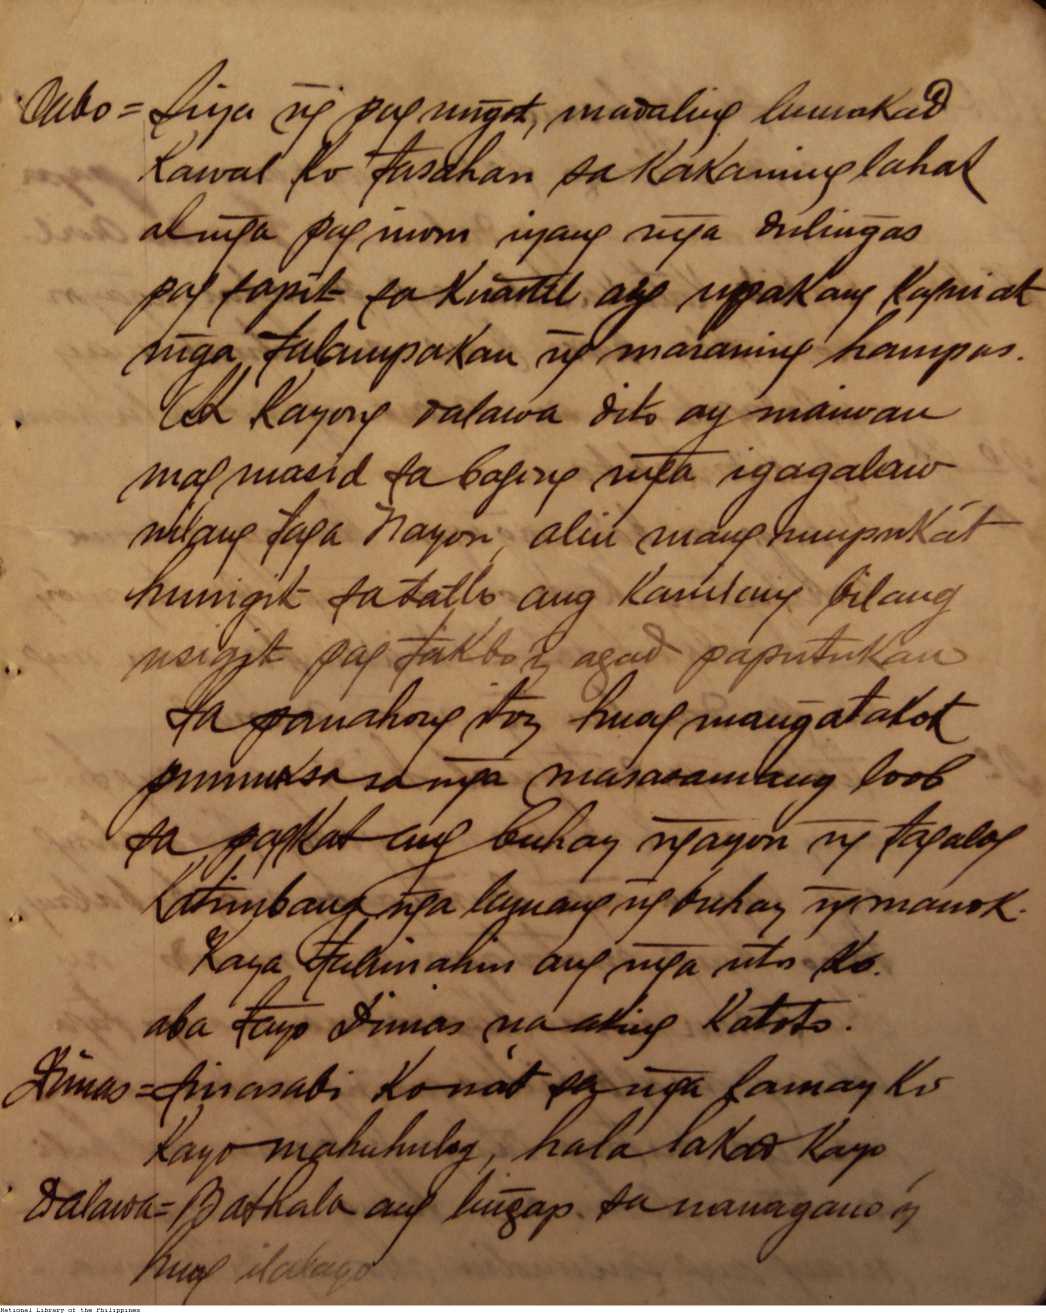 Cabo = Siya ng̃ pag ung̃ot, madaling lumakad
Kawal ko tasahan sa kakaning lahat
at mg̃a pag inom iyang mg̃a duling̃as
pag sapit sa kuartel ay upakang
mg̃a talampakan ng maraming hampas.
At kayong dalawa dito ay maiwan
mag masid sa bagong mg̃a igagalaw
nilang taga Nayon, alin mang mupukát
humigit sa tatlo ang kanilang bilang
usigit pag takbo'y agad paputukan
sa panahong ito'y huag mang̃atakot
pumuksa sa mg̃a masasamang loob
sa pagkat ang buhay ng̃ayon ng tagalog
Katimbang ng̃a lamang ng̃ buhay ng̃ manok.
Kaya tuliinahin ang mg̃a utos ko.
aba tayo Dimas na aking Katoto.
Dimas = sinasabi ko na't sa mg̃a kamay ko
Kayo mahuhulog, hala lakad kayo
Dalawa = Bathala ang ling̃ap sa nanagano'y
huag ilalayo
National Library of the Philippines